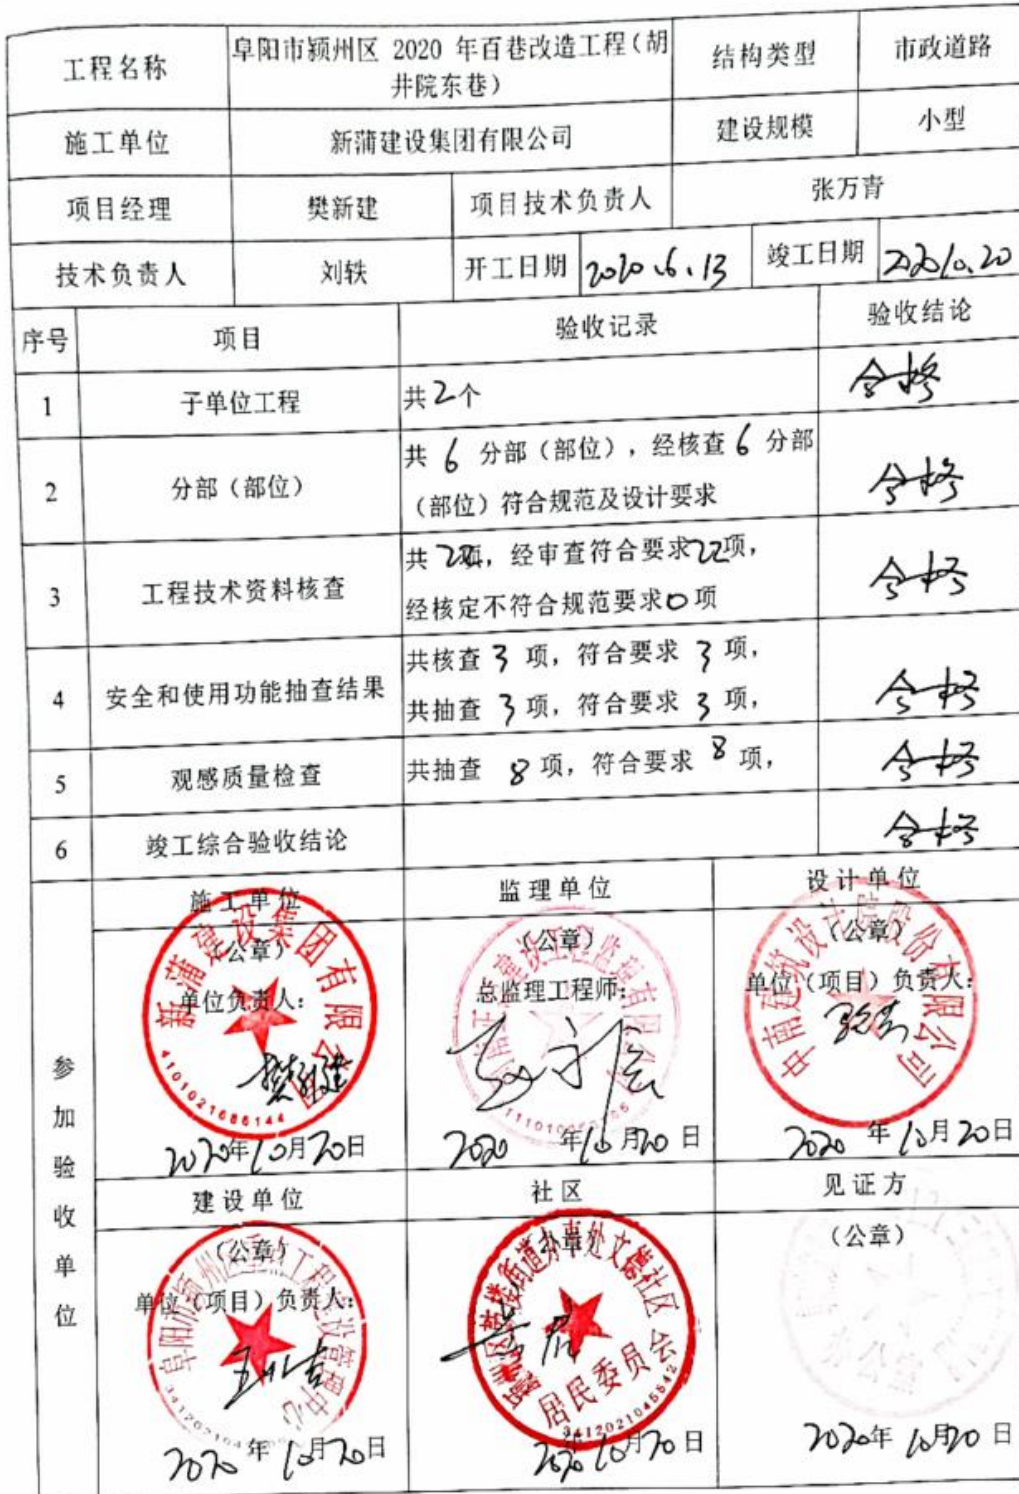 工程名称
阜阳市颍州区 2020 年百巷改造工程（胡
井院东巷）
结构类型
市政道路
施工单位
新蒲建设集团有限公司
建设规模
小型
项目经理
樊新建
项目技术负责人
张万青
技术负责人
刘轶
开工日期
2020.6.13
竣工日期
2020.10.20
序号
项目
验收记录
验收结论
1
子单位工程
共2个
合格
2
分部（部位）
共 6 分部（部位），经核查 6 分部
（部位）符合规范及设计要求
合格
3
工程技术资料核查
共 22项，经审查符合要求22项，
经核定不符合规范要求0项
合格
4
安全和使用功能抽查结果
共核查 3 项，符合要求 3 项，
共抽查 3 项，符合要求 3 项，
合格
5
观感质量检查
共抽查 8 项，符合要求 8 项，
合格
6
竣工综合验收结论
合格
参加验收单位
施工单位
（公章）
单位负责人：
樊新建
新蒲建设集团有限公司
4101021686144
2020年10月20日
监理单位
（公章）
总监理工程师：
2020 年10月20日
设计单位
（公章）
单位（项目）负责人：
中南建筑设计院股份有限公司
2020 年10月20日
建设单位
（公章）
单位（项目）负责人：
2020年10月20日
社区
（公章）
文德社区
居民委员会
3412021045542
2020年10月20日
见证方
（公章）
2020年10月20日